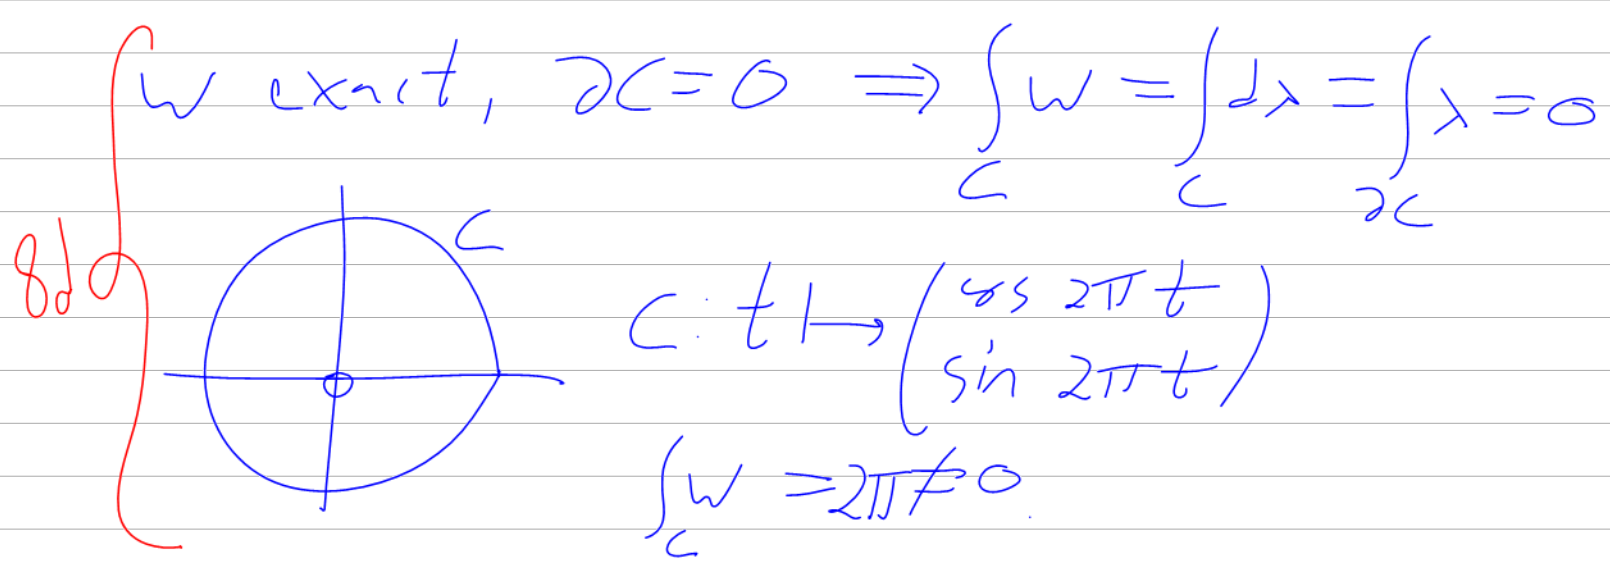 w exact, ∂C = 0 ⟹ ∫_C w = ∫_C dλ = ∫_∂C λ = 0
8d
C
C : t ↦ ( cos 2πt
sin 2πt )
∫_C w = 2π ≠ 0.